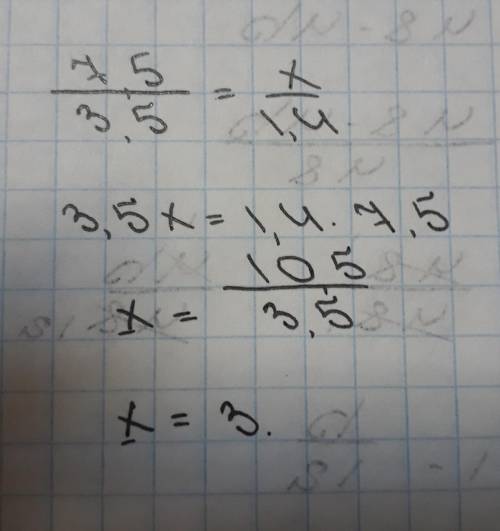 7,5/3,5 = x/1,4
3,5x = 1,4 · 7,5
x = 10,5/3,5
x = 3.